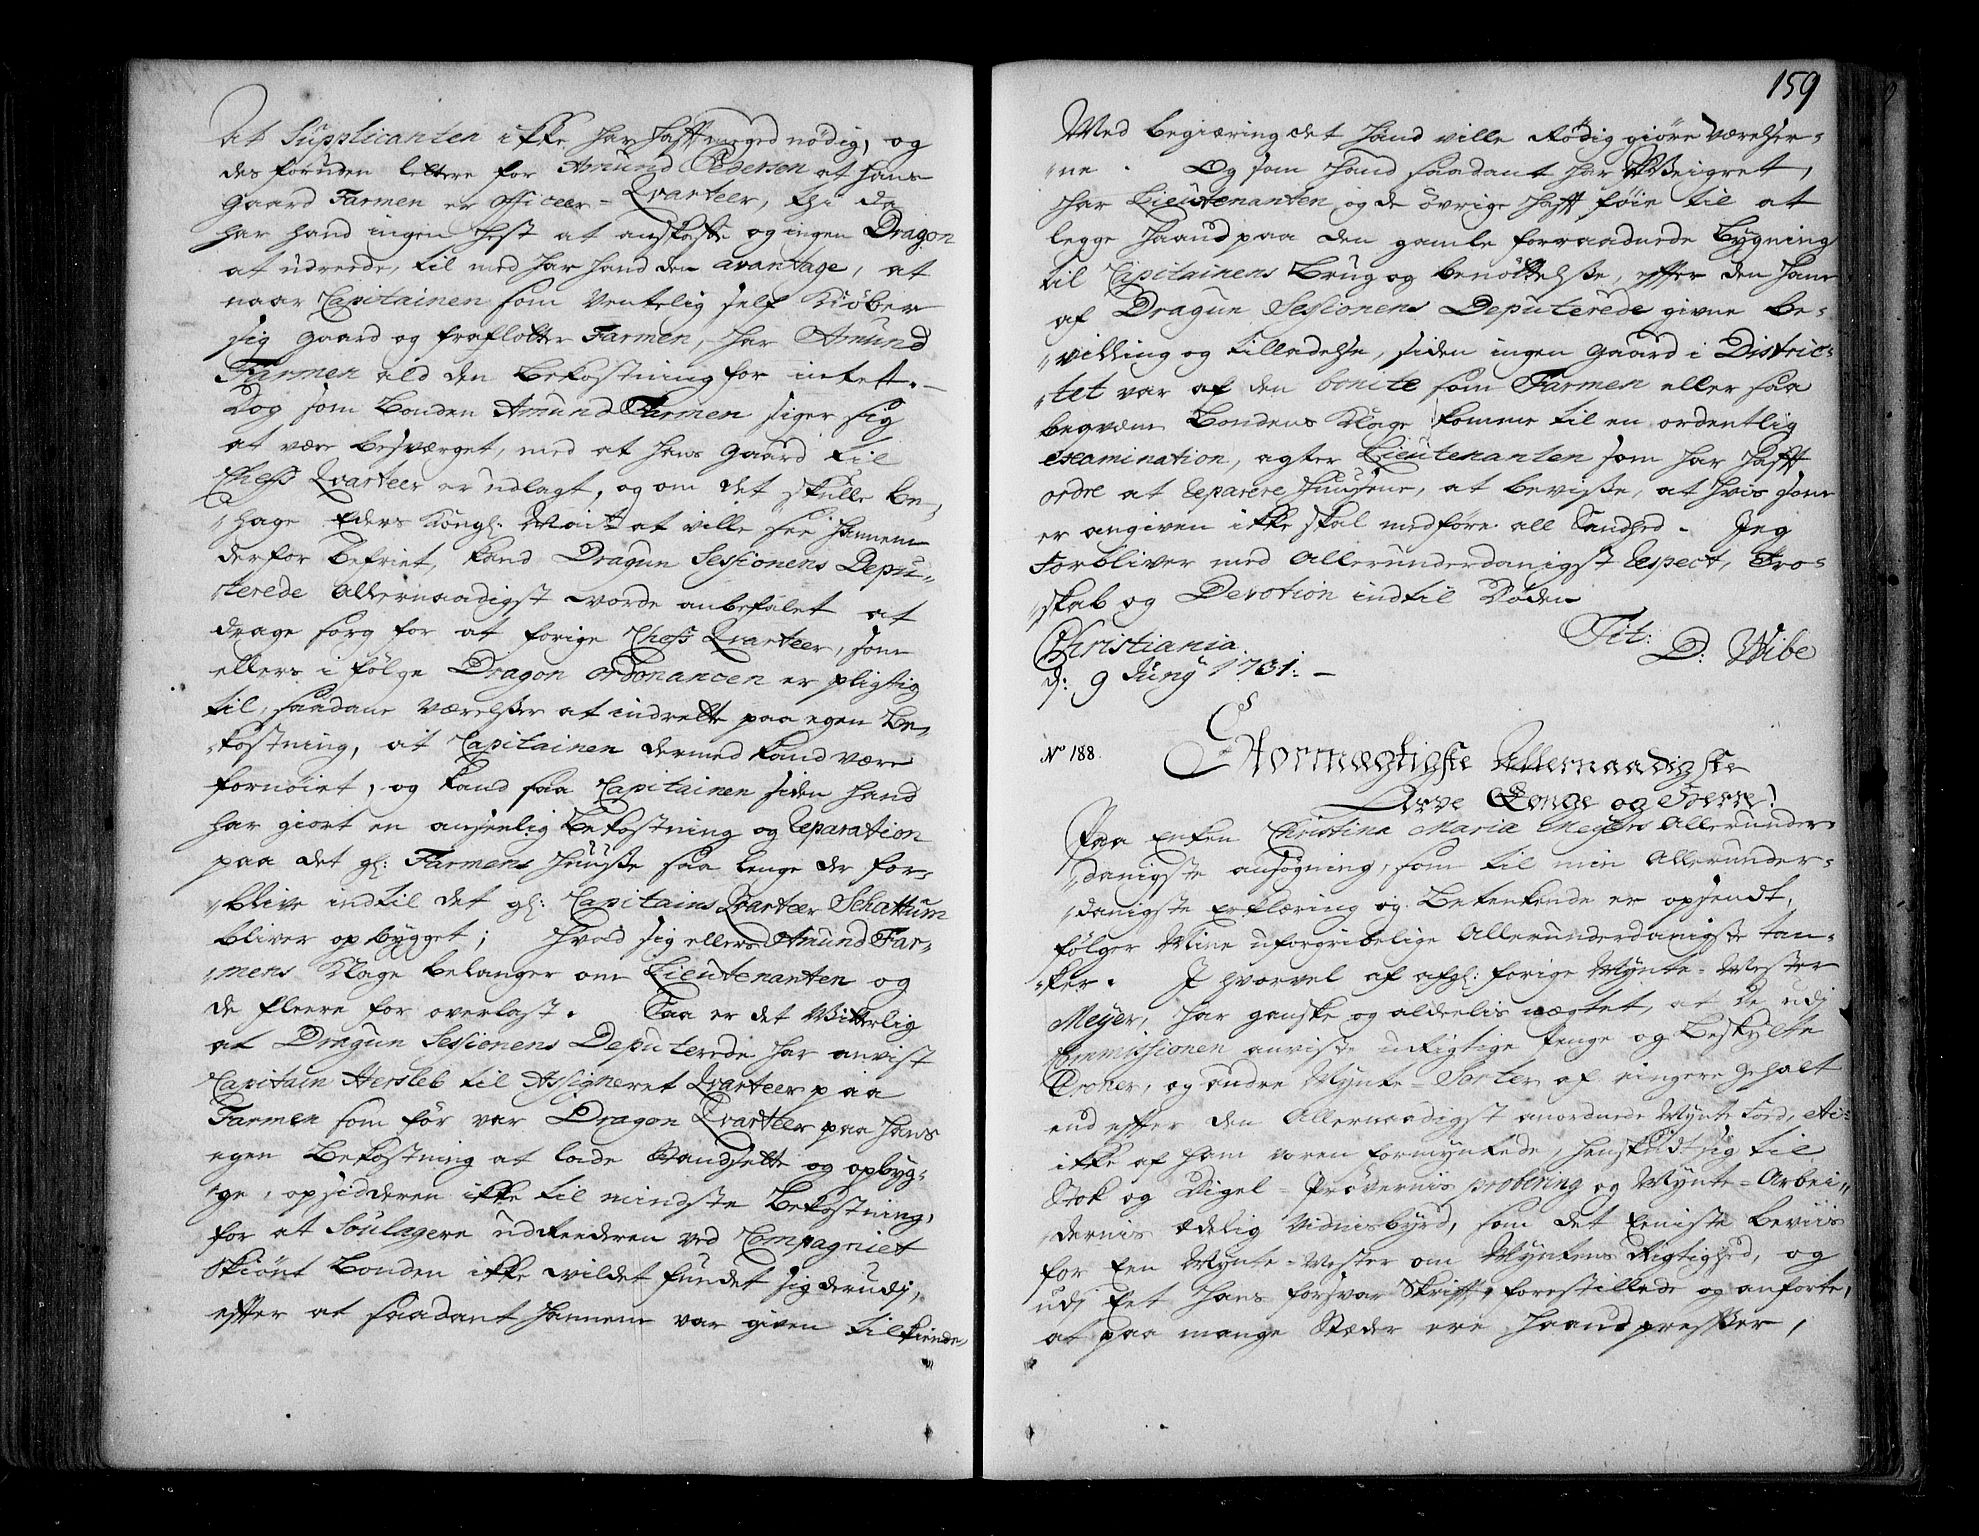 At Supplicanten ikke har hafft meged nödig, og
des foruden lettere for Amund Pedersen at hans
gaard Farmen er officeer-Qvarteer, thi da
har hand ingen Hest at anskaffe og ingen Dragon
at udreede, til med har hand den avantage, at
naar Capitainen som ventelig self Kiöber
sig gaard og fraflötter Farmen, har Amund
Farmen ald den Bekostning for intet.
Dog som Bonden Amund Farmen siger sig
at være besværget, med at hans gaard til
Cheffs Qvarteer er udlagt, og om det skulle be-
hage Eders Kongl: Mait at ville see hannem
derfor befriet, kand Dragun Sessionens Depu-
terede Allernaadigst worde anbefalet at
drage sorg for at forige Cheffs Qvarteer, som
ellers i fölge Dragon ordonancen er pligtig
til, saadane Værelsser at indrette paa egen be-
kostning, at Capitainen dermed kand være
fornöiet, og kand saa Capitainen siden hand
har giort en anseelig Bekostning og Reparation
paa det gl: Farmens Huusse saa lenge der for-
blive indtil det gl: Capitains Qvarteer Schattum
bliver opbygget; Hvad sig ellers Amund Far-
mens Klage belanger om Lieutenanten og
de fleere for overlast. Saa er det Vitterlig
at Dragun Sessionens Deputerede har anvist
Capitain Hersleb til Assigneret Qvarteer paa
Farmen som för var Dragon Qvarteer paa hans
egen Bekostning at lade istandsette og opbyg-
ge, opsidderen ikke til mindste Bekostning,
for at Soulagere udreederen ved Compagniet
Skiönt Bonden ikke vildet fundet sig derudj,
effter at saadant hannem var given tilkiende,
159
Med begiæring det hand ville Rödig giöre værelser-
ne. Og som hand saadant har Weigret,
har Lieutenanten og de övrige hafft föie til at
legge haand paa den gamle forraadnede bygning
til Capitainens Brug og benöttelsse, effter den ham
af Dragun Sessionens Deputerede givne be-
villing og tilladelse, siden ingen gaard i Distric-
tet var af den bonite som Farmen eller saa
beqvem Bondens Klage komme til en ordentlig
examination, agter Lieutenanten som har hafft
ordre at Reparere Huusene, at bevisse, at hvis som
er angiven ikke skal medföre all Sandhed. Jeg
Forbliver med Allerunderdanigst Respect, Tro-
skab og Devotion indtil Döden
Christiania Tit:
d: 9 Juny 1731. D: Wibe
No 188.
Stormægtigste Allernaadigste
Arve Konge og Herre!
Paa Enken Christina Maria Meyers Allerunder-
danigste ansögning, som til min Allerunder-
danigste Erklæring og Betenkende er opsendt,
fölger Mine uforgribelige Allerunderdanigste tan-
ker. I hvorvel af afgl: forige Mynte-Mester
Meyer, har ganske og aldeelis nægtet, at de udj
Commissionen anviste urigtige penge og beskylte
Croner, og andre Mynte-Sorter af ringere gehalt
end effter den Allernaadigst anordnede Myntefod, Ai
ikke af ham voren formyntede, henskudt sig til
Stok og Digel-Pröverniis probering og Mynte-Arbei-
dernis Edelig Vidnisbyrd, som det Eeniste beviis
for Een Mynte-Mester om Myntens Rigtighed, og
udj Eet hans forsvar Skrifft forestillede og anforte,
at paa mange Stæder ere Haandpresser,